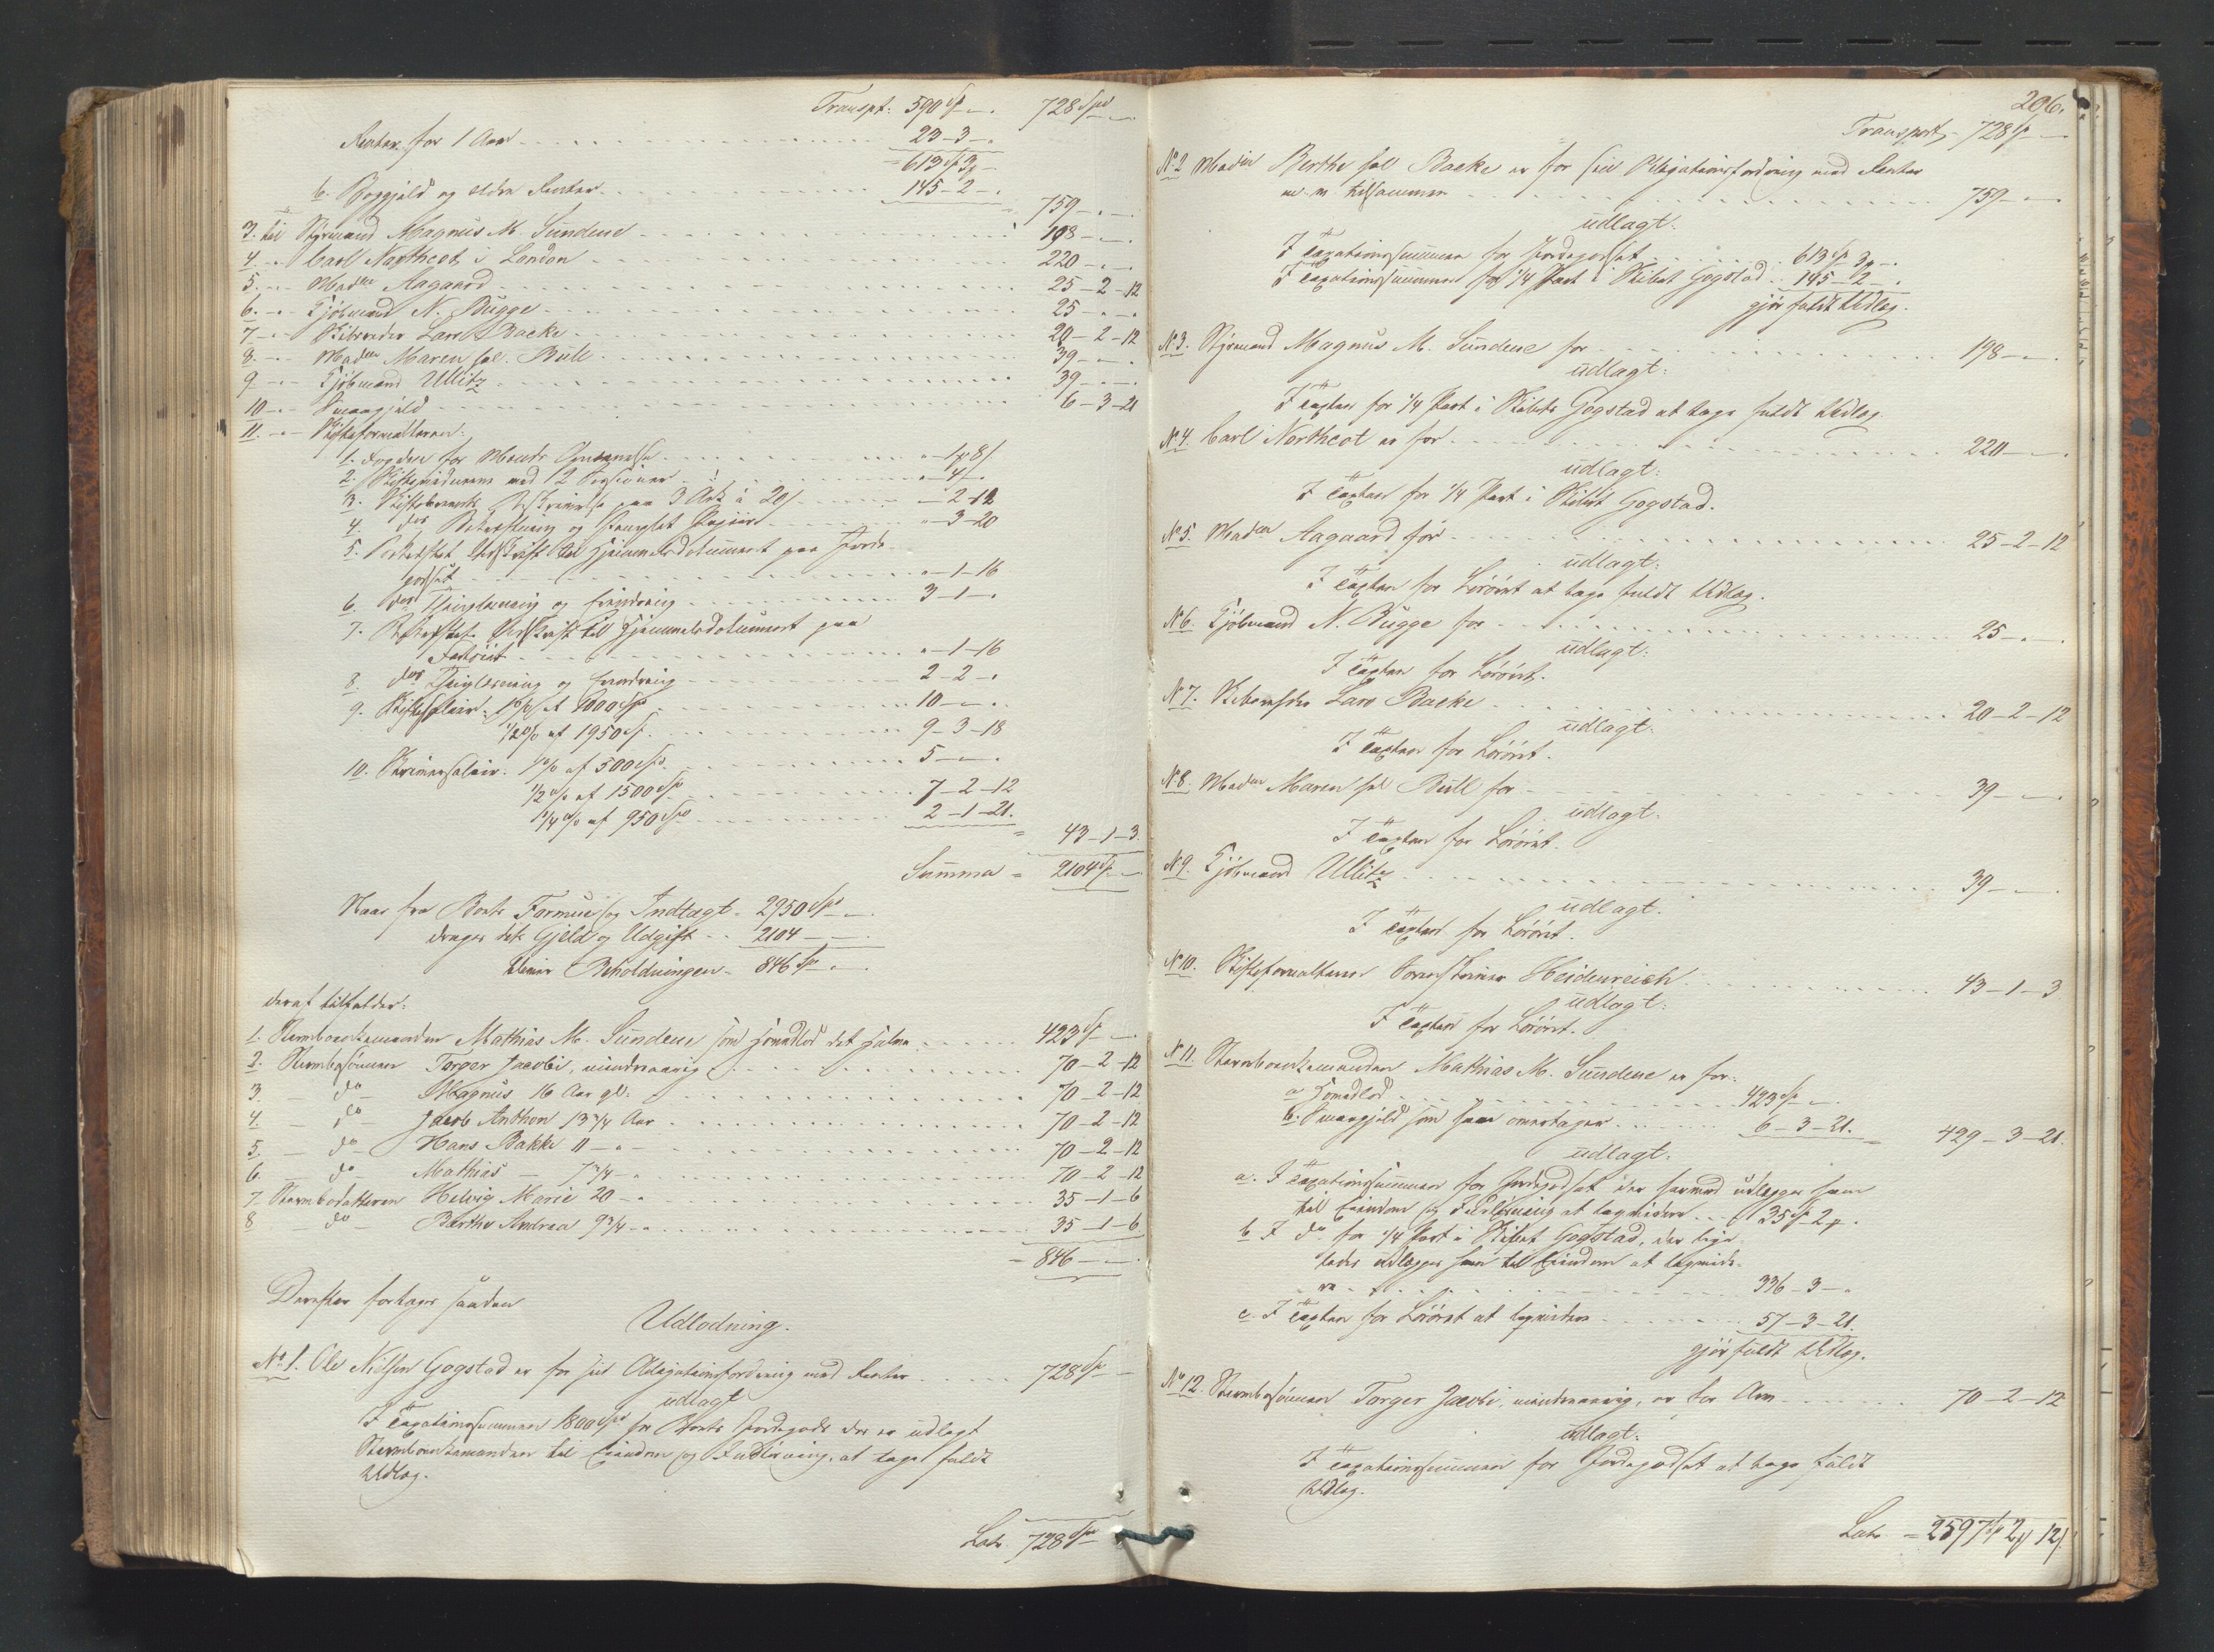 Transpt: 590 Sp - . 728 Spd -
Renter for 1 Aar 23 - 3 - .
= 613 Sp 3 -
b. Boggjæld og ældre Renter 145 - 2 - .
= 759 - . - .
3. til Styrmand Magnus M. Sundene 198 - . - .
4. - . - Carl Northcot i London 220 - . - .
5. - . - Madme Aagaard 25 - 2 - 12
6. - . - Kjøbmand N. Bugge 25 - . - .
7. - . - Skibsreder Lars Backe 20 - 2 - 12
8. - . - Madme Maren sal. Bull 39 - . - .
9. - . - Kjøbmand Ullitz 39 - . - .
10. - . - Smaagjæld 6 - 3 - 21
11. - . - Skifteforvalteren:
1. 1 - 8
2. Skifteprocedurens med 12 Sessioner . - 4 - .
3. Skiftebrevets Beskrivelse paa 3 Ark à 20 . - 2 - 12
4. do Bekræftning og stemplet Papiir . - 3 - 20
5. Bekræftet Udskrift til Hjemmelsdokument paa Jorde-
godset . - 1 - 16
6. do Thinglæsning og 3 - 1 - .
7. Bekræftet Udskrift til Hjemmelsdokument paa
Fartøiet . - 1 - 16
8. do Thinglæsning og 2 - 2 - .
9. Skiftesalair: 1 % af 1000 Spd 10 - . - .
1/2 % af 1950 Sp. 9 - 3 - 18
10. Skriversalair: 1 % af 500 Spd. 5 - . - .
1/2 % af 1500 Spd 7 - 2 - 12
1/4 % af 950 Spd 2 - 1 - 21.
= 43 - 1 - 3.
Summa = 2104 Sp. -
Naar fra Boets Formue og Indtægt = 2950 Spd - .
drages dets Gjeld og Udgift - 2104 - . - .
bliver Beholdningen = 846 Spd - .
deraf tilfalder:
1. Stervboenkemanden Mathias M. Sundene som Hovedlod det halve 423 Sp -
2. Stervbosønnen Torger Jacobi, mindreaarig 70 - 2 - 12
3. - do - Magnus 16 Aar gl. 70 - 2 - 12
4. - do Jacob Anthon 13 3/4 Aar 70 - 2 - 12
5. - do - Hans Bakke 11 - . 70 - 2 - 12
6. do Mathias - 7 3/4 - . 70 - 2 - 12
7. Stervbodatteren Helvig Marie 20 - . 35 - 1 - 6
8 - do - Berthe Andrea 9 3/4 - . 35 - 1 - 6
= 846 - . - .
Derefter foretages saadan
Udlodning.
No 1. Ole Nielsen Gogstad er for sin Obligationsfordring med Renter 728 Spd -
udlagt
I Taxationssummen 1800 Spd for Boets Jordegods der er udlagt
Stervboenkemanden til Eiendom og Indløsning, at tage fuldt
Udlæg.
Lats 728 Spd -
206.
Transport - 728 Sp -
No 2 Madm Berthe sal Backe er for sin Obligationsfordring med Renter
m. m. tilsammen 759 - . - .
udlagt.
I Taxationssummen for Jordegodset 613 Sp 3 - .
I Taxationssummen for 1/4 Part i Skibet Gogstad 145 - 2 - .
gjør fuldt Udlæg.
No 3. Styrmand Magnus M. Sundene for 198 - . - .
udlagt:
I Taxten for 1/4 Part i Skibet Gogstad at tage fuldt Udlæg.
No 4. Carl Northcot er for 220 - . - .
udlagt:
I Taxten for 1/4 Part i Skibet Gogstad.
No 5. Madm Aagaard for 25 - 2 - 12
udlagt:
I Taxten for Løsøret at tage fuldt Udlæg.
No 6. Kjøbmand N. Bugge for 25 - . - .
udlagt:
I Taxten for Løsøret.
No 7. Skibsreder Lars Backe 20 - 2 - 12
udlagt:
I Taxten for Løsøret.
No 8. Madm Maren sal Bull for 39 - . - .
udlagt:
I Taxten for Løsøret.
No 9. Kjøbmand Ullitz 39 - . - .
udlagt.
I Taxten for Løsøret.
No 10. Skifteforvalteren Sorenskriver Heidenreich 43 - 1 - 3
udlagt:
I Taxten for Løsøret.
No 11. Stervboenkemanden Mathias M. Sundene er for:
a. Hovedlod 423 Sp - .
b. Smaagjæld som han overtager 6 - 3 - 21. = 429 - 3 - 21.
udlagt:
a. I Taxationssummen for Jordegodset der hermed udlægges ham
til Eiendom og Indløsning at 35 Sp 2 .
b. I do for 1/4 Part i Skibet Gogstad, der lige-
ledes udlægges ham til Eiendom at
336 - 3 - .
c. I Taxten for Løsøret at 57 - 3 - 21.
gjør fuldt Udlæg.
No 12. Stervbosønnen Torger Jacobi, mindreaarig, er for Arv 70 - 2 - 12
udlagt:
I Taxationssummen for Jordegodset at tage fuldt
Udlæg.
Lats = 2597 Sp 2 12